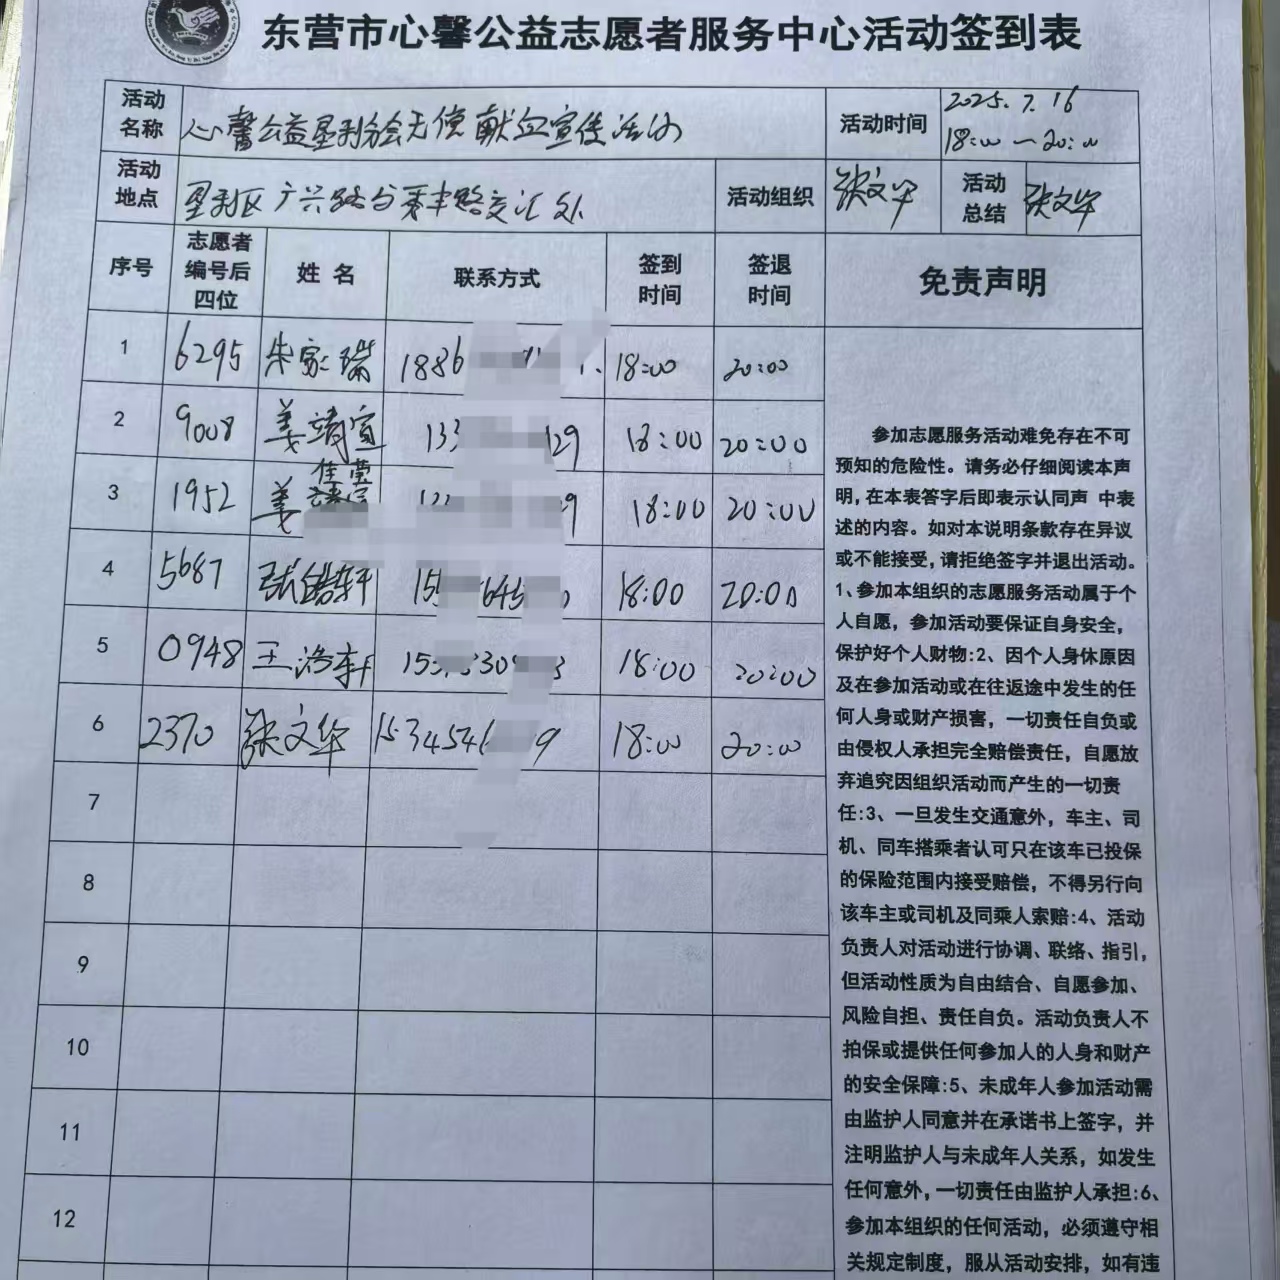 东营市心馨公益志愿者服务中心活动签到表
活动名称 心馨公益垦利分会无偿献血宣传活动 活动时间 2025.7.16 18:00—20:00
活动地点 垦利区广兴路与 路交汇处 活动组织 张文华 活动总结 张文华
序号 志愿者编号后四位 姓名 联系方式 签到时间 签退时间 免责声明
1 6295 朱家瑞 1886 18:00 20:00
2 9008 姜靖宣 133 129 18:00 20:00
3 1952 姜佳萱 9 18:00 20:00
4 5687 张皓轩 15 645 18:00 20:00
5 0948 王浩轩 15 30 18:00 20:00
6 2370 张文华 1534546 9 18:00 20:00
7
8
9
10
11
12
参加志愿服务活动难免存在不可
预知的危险性。请务必仔细阅读本声
明,在本表答字后即表示认同声 中表
述的内容。如对本说明条款存在异议
或不能接受,请拒绝签字并退出活动。
1、参加本组织的志愿服务活动属于个
人自愿，参加活动要保证自身安全，
保护好个人财物:2、因个人身休原因
及在参加活动或在往返途中发生的任
何人身或财产损害，一切责任自负或
由侵权人承担完全赔偿责任，自愿放
弃追究因组织活动而产生的一切责
任:3、一旦发生交通意外，车主、司
机、同车搭乘者认可只在该车已投保
的保险范围内接受赔偿，不得另行向
该车主或司机及同乘人索赔:4、活动
负责人对活动进行协调、联络、指引，
但活动性质为自由结合、自愿参加、
风险自担、责任自负。活动负责人不
拍保或提供任何参加人的人身和财产
的安全保障:5、未成年人参加活动需
由监护人同意并在承诺书上签字，并
注明监护人与未成年人关系，如发生
任何意外，一切责任由监护人承担:6、
参加本组织的任何活动，必须遵守相
关规定制度，服从活动安排，如有违